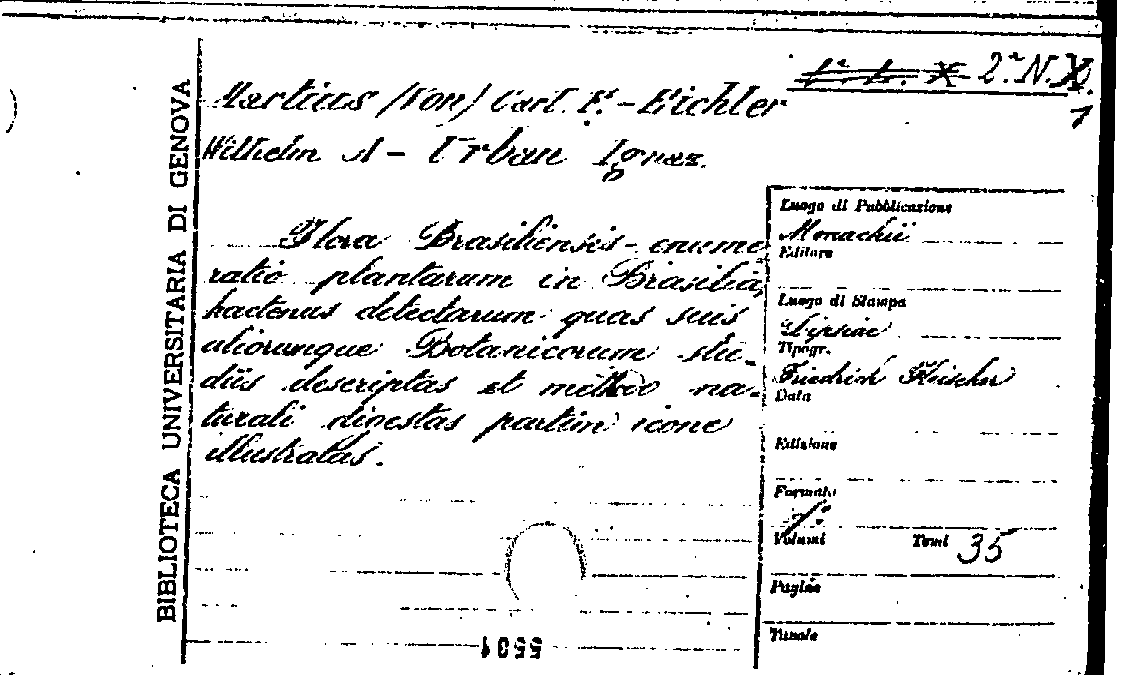 BIBLIOTECA UNIVERSITARIA DI GENOVA
1ª L. X 2ª N. X.
1
Martius (Von) Carl. F. - Eichler
Wilhelm A - Urban Ignaz.
Flora Brasiliensis - enume
ratio plantarum in Brasilia,
hactenus detectarum quas suis
aliorumque Botanicorum stu-
diis descriptas et methodo na-
turali digestas partim icone
illustratas.
Luogo di Pubblicazione
Monachii
Editore
Luogo di Stampa
Lipsiae
Tipogr.
Friedrich Fleischer
Data
Edizione
Formato
Volumi Tomi 35
Pagine
Tavole
5501